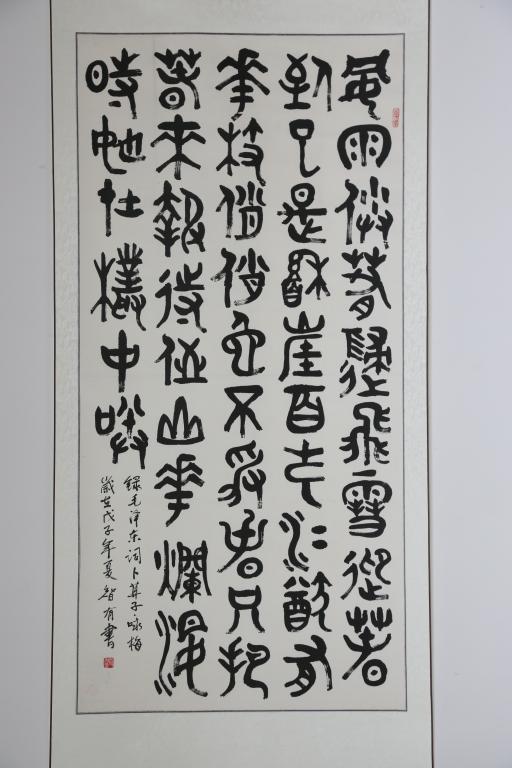 風雨送春歸飛雪迎春
到已是縣崖百丈冰猶有
華枝俏俏也不爭春只把
春來報待到山華爛漫
時她在叢中笑
録毛泽东词卜算子咏梅
歲在戊子年夏智有書